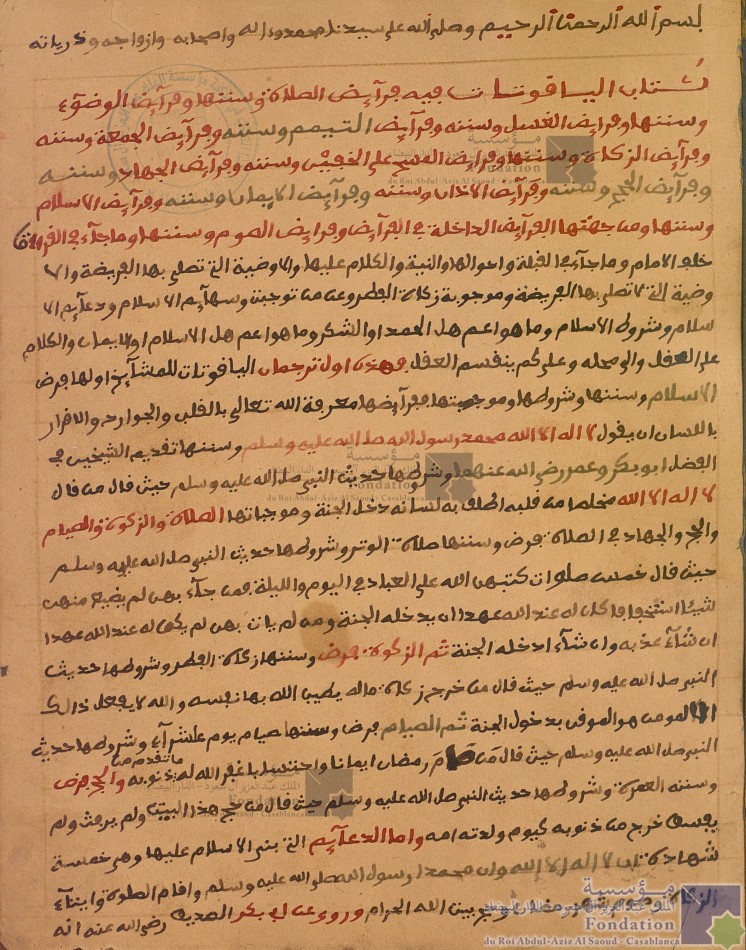 بسم الله الرحمن الرحيم وصلى الله على سيدنا محمد وءاله واصحابه وازواجه وذرياته
كتاب الياقوتات فيه فرآيض الصلاة وسننها وفرآيض الوضوء
وسننها وفرايض الغسل وسننه وفرآيض التيمم وسننه وفرآيض الجمعة وسننه
وفرآيض الزكاة وسننها وفرآيض المسح على الخفين وسننه وفرآيض الجهاد وسننه
وفرآيض الحج وسننه وفرآيض الاذان وسننه وفرآيض الايمان وسننه وفرآيض الاسلام
وسننها ومن جهتها الفرآيض الداخلة في الفرآيض وفرايض الصوم وسننها وما جآء في القراة
خلف الامام وما جآء في القبلة واحوالها والنية والكلام عليها والاوضية التي تصلى بها الفريضة والا
وضية التي لا تصلى بها الفريضة وموجوبة زكاة الفطر وعن من توجبت وسهآيم الاسلام ودعآيم الا
سلام وشروط الاسلام وما هو اعم هل الحمد او الشكر وما هو اعم هل الاسلام او الايمان والكلام
على العقل والى محله وعلى كم ينقسم العقل وهذه اول ترجمان الياقوتات للمشآيخ اولها فرض
الاسلام وسننها وشروطها وموجبتها ففرآيضها معرفة الله تعالى بالقلب والجوارح والاقرار
باللسان ان يقول لا اله الا الله محمد رسول الله صلى الله عليه وسلم وسننها تقديم الشيخين في
الفضل ابو بكر وعمر رضي الله عنهما وشرطها حديث النبي صلى الله عليه وسلم حيث قال من قال
لا اله الا الله مخلصا من قلبه اطلق به لسانه دخل الجنة وموجباتها الصلاة والزكوة والصيام
والحج والجهاد في الصلاة فرض وسننها صلاة الوتر وشروطها حديث النبي صلى الله عليه وسلم
حيث قال خمس صلوات كتبهن الله على العباد في اليوم والليلة فمن جآء بهن لم يضيع منهن
شيئا استخفافا كان له عند الله عهدا ان يدخله الجنة ومن لم يات بهن لم يكن له عند الله عهدا
ان شآء عذبه وان شآء ادخله الجنة ثم الزكوة فرض وسننها زكاة الفطر وشروطها حديث
النبي صلى الله عليه وسلم حيث قال من خرج زكاة ماله يطيب الله بها نفسه والله لا يفعل ذالك
الا المومن هو الموفى بدخول الجنة ثم الصيام فرض وسننها صيام يوم عاشرآء وشروطها حديث
النبي صلى الله عليه وسلم حيث قال من صام رمضان ايمانا واحتسابا غفر الله له ما تقدم من ذنوبه والحج فرض
وسننه العمرة وشروطها حديث النبي صلى الله عليه وسلم حيث قال من حج هذا البيت ولم يرفث ولم
يفسق خرج من ذنوبه كيوم ولدته امه واما الدعآيم التي بني الاسلام عليها وهي خمسة
شهادة ان لا اله الا الله وان محمدا رسول الله صلى الله عليه وسلم واقام الصلوة وايتآء
الزكاة وصوم شهر رمضان وحج بيت الله الحرام وروي عن ابي بكر الصديق رضي الله عنه انه
مؤسسة
الملك عبد العزيز آل سعود - الدار البيضاء
Fondation
du Roi Abdul-Aziz Al Saoud - Casablanca